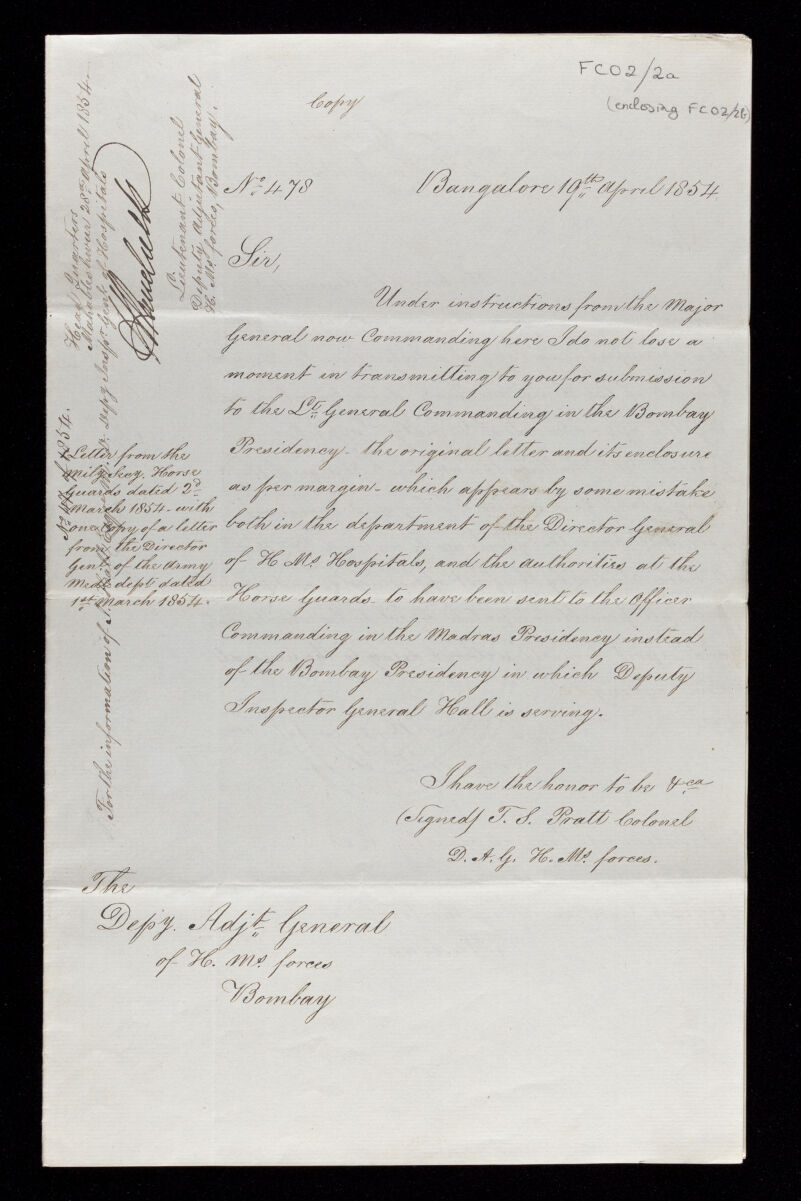 FCO2/2a
(enclosing FCO2/2b)
Copy
No. 478 Bangalore 19th April 1854.
Sir,
Under instructions from the Major
General now Commanding here I do not lose a
moment in transmitting to you for submission
to the Lt. General Commanding in the Bombay
Presidency - the original letter and its enclosure
as per margin - which appears by some mistake
both in the department of the Director General
of H Ms Hospitals, and the authorities at the
Horse Guards to have been sent to the Officer
Commanding in the Madras Presidency instead
of the Bombay Presidency in which Deputy
Inspector General Hall is serving.
I have the honor to be &ca
(Signed) T. S. Pratt Colonel
D. A. G. H. Ms. forces.
The
Depy. Adjt. General
of H. Ms. forces
Bombay
Letter from the
Mily Secy. Horse
Guards dated 2d
March 1854 - with
one Copy of a letter
from the Director
Genl. of the Army
Medl. dept dated
1st March 1854.
No. of 1854.
For the information of Depy Inspr. Genl. of Hospitals
Head Quarters
Mahableshwur 28th April 1854.
Lieutenant Colonel
Deputy Adjutant General
H. Ms. forces, Bombay.